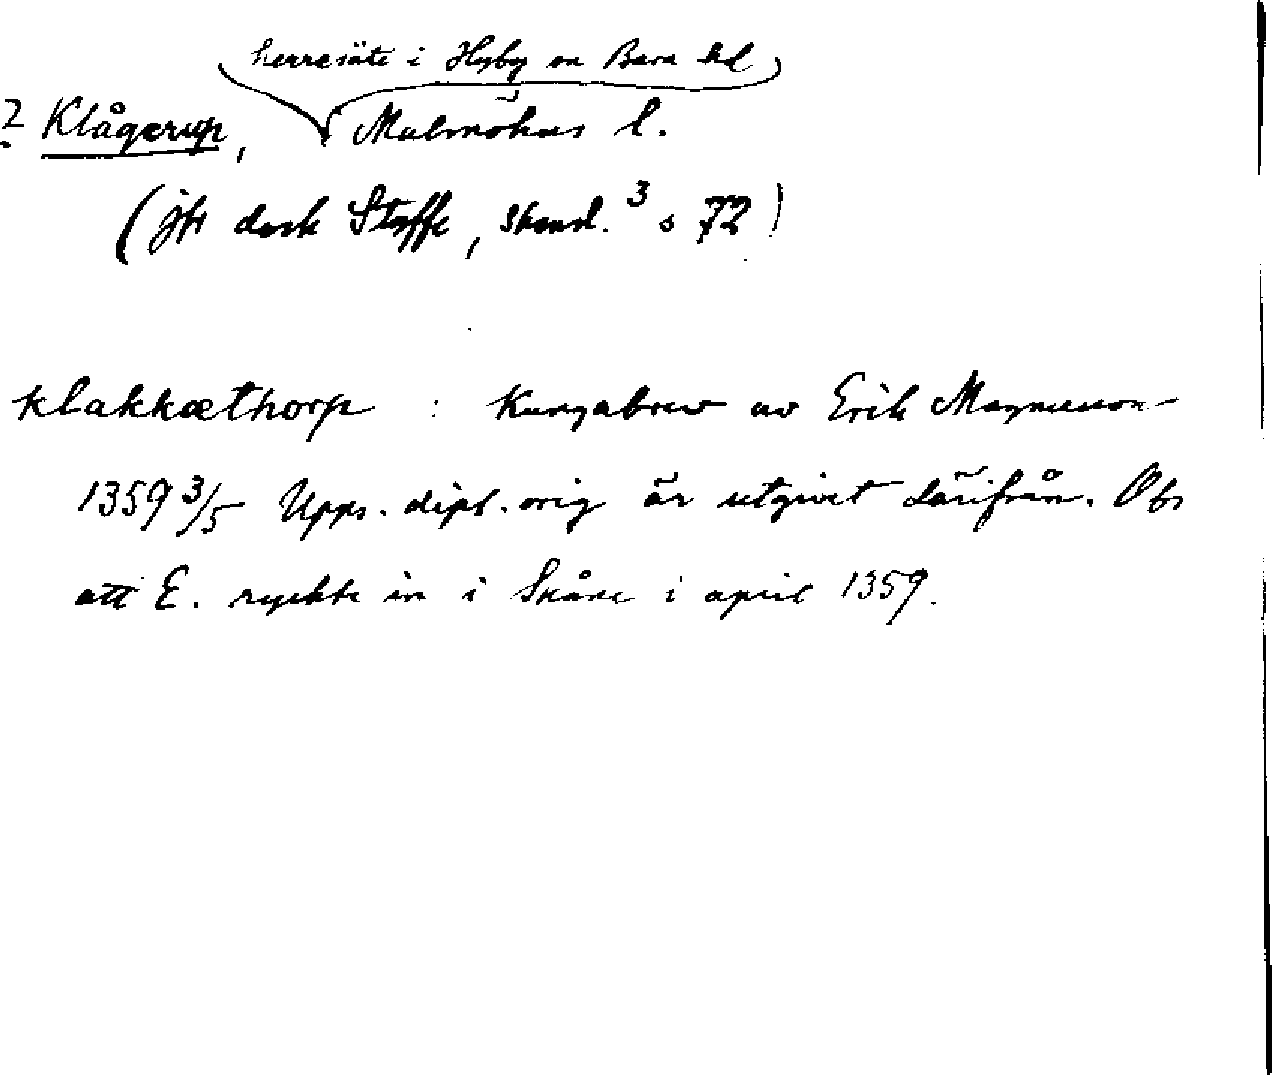 herresäte i Hyby sn Bara hd
? Klågerup, Malmöhus l.
(jfr dock Staffe, Skånel.³ s 72)
klakkæthorp : Kungabrev av Erik Magnusson
1359 3/5 Upps. dipl. orig är utgivet därifrån. Obs
att E. ryckte in i Skåne i april 1359.